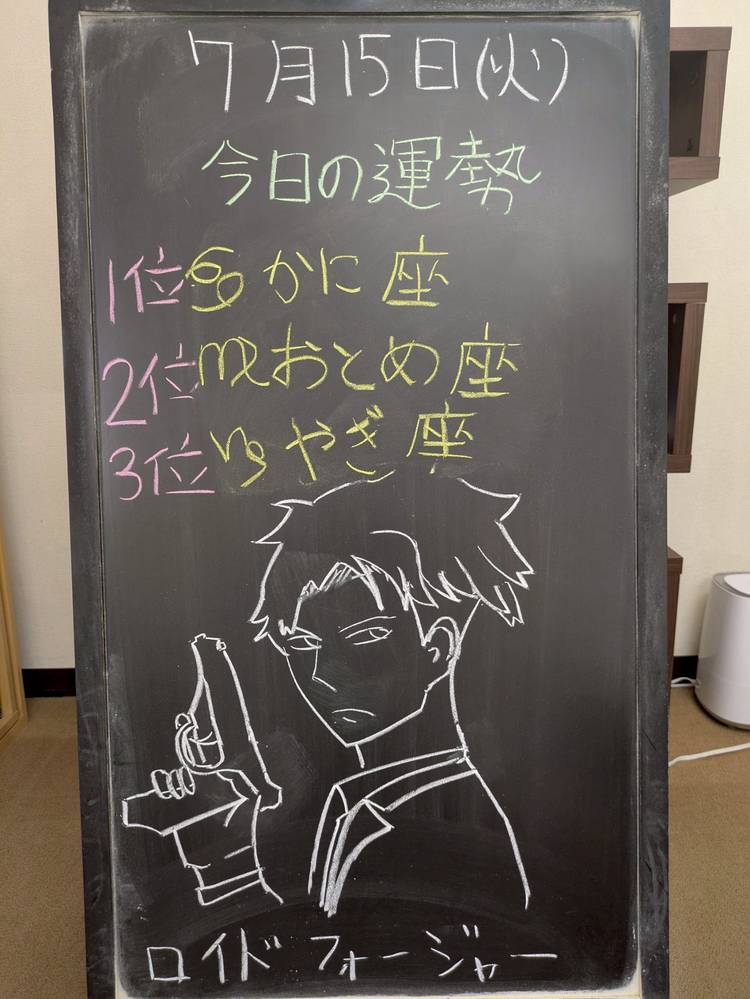 7月15日(火)
今日の運勢
1位♋かに座
2位♍おとめ座
3位♑やぎ座
ロイド フォージャー